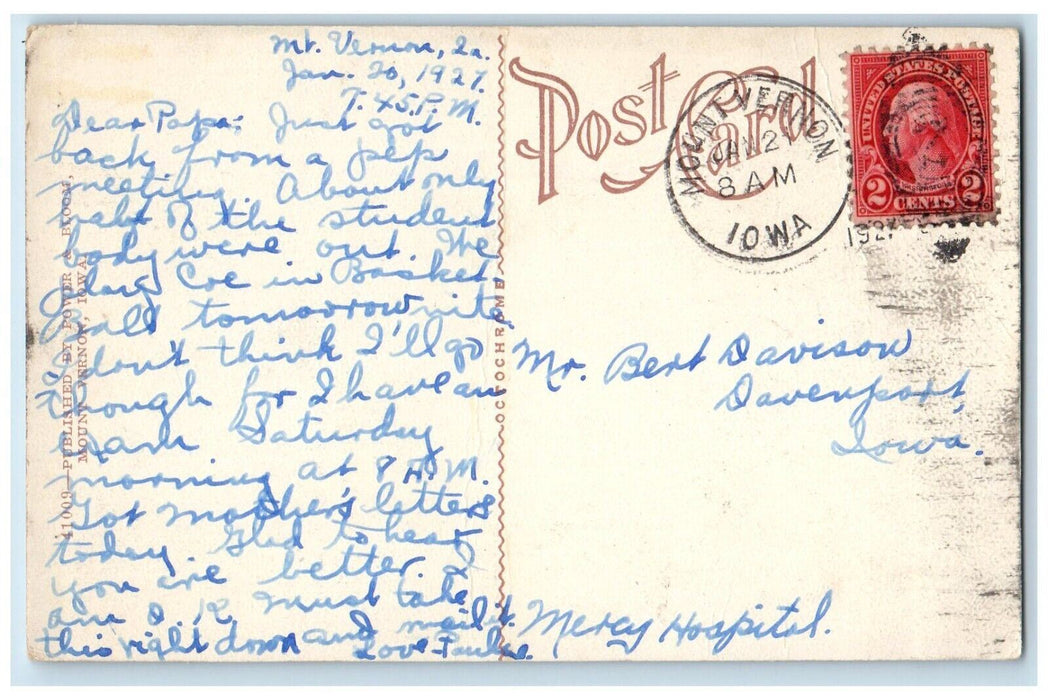 Mt. Vernon, Ia.
Jan. 20, 1927.
7:45 P.M.
Dear Papa: Just got
back from a pep
meeting. About only
half of the student
body were out. We
play Coe in Basket
Ball tomorrow nite.
I don't think I'll go
though for I have an
exam Saturday
morning at 8 A.M.
Got Mother's letters
today. Glad to hear
you are better. I
am O.K. Must take
this right down and mail it.
Love Pauline.
41009—PUBLISHED BY POWER & BLOOM,
MOUNT VERNON, IOWA
OCTOCHROME
Post Card
MOUNT VERNON
JAN 21
8 AM
IOWA
1927
UNITED STATES POSTAGE
2 CENTS 2
Mr. Bert Davison
Davenport,
Iowa.
Mercy Hospital.